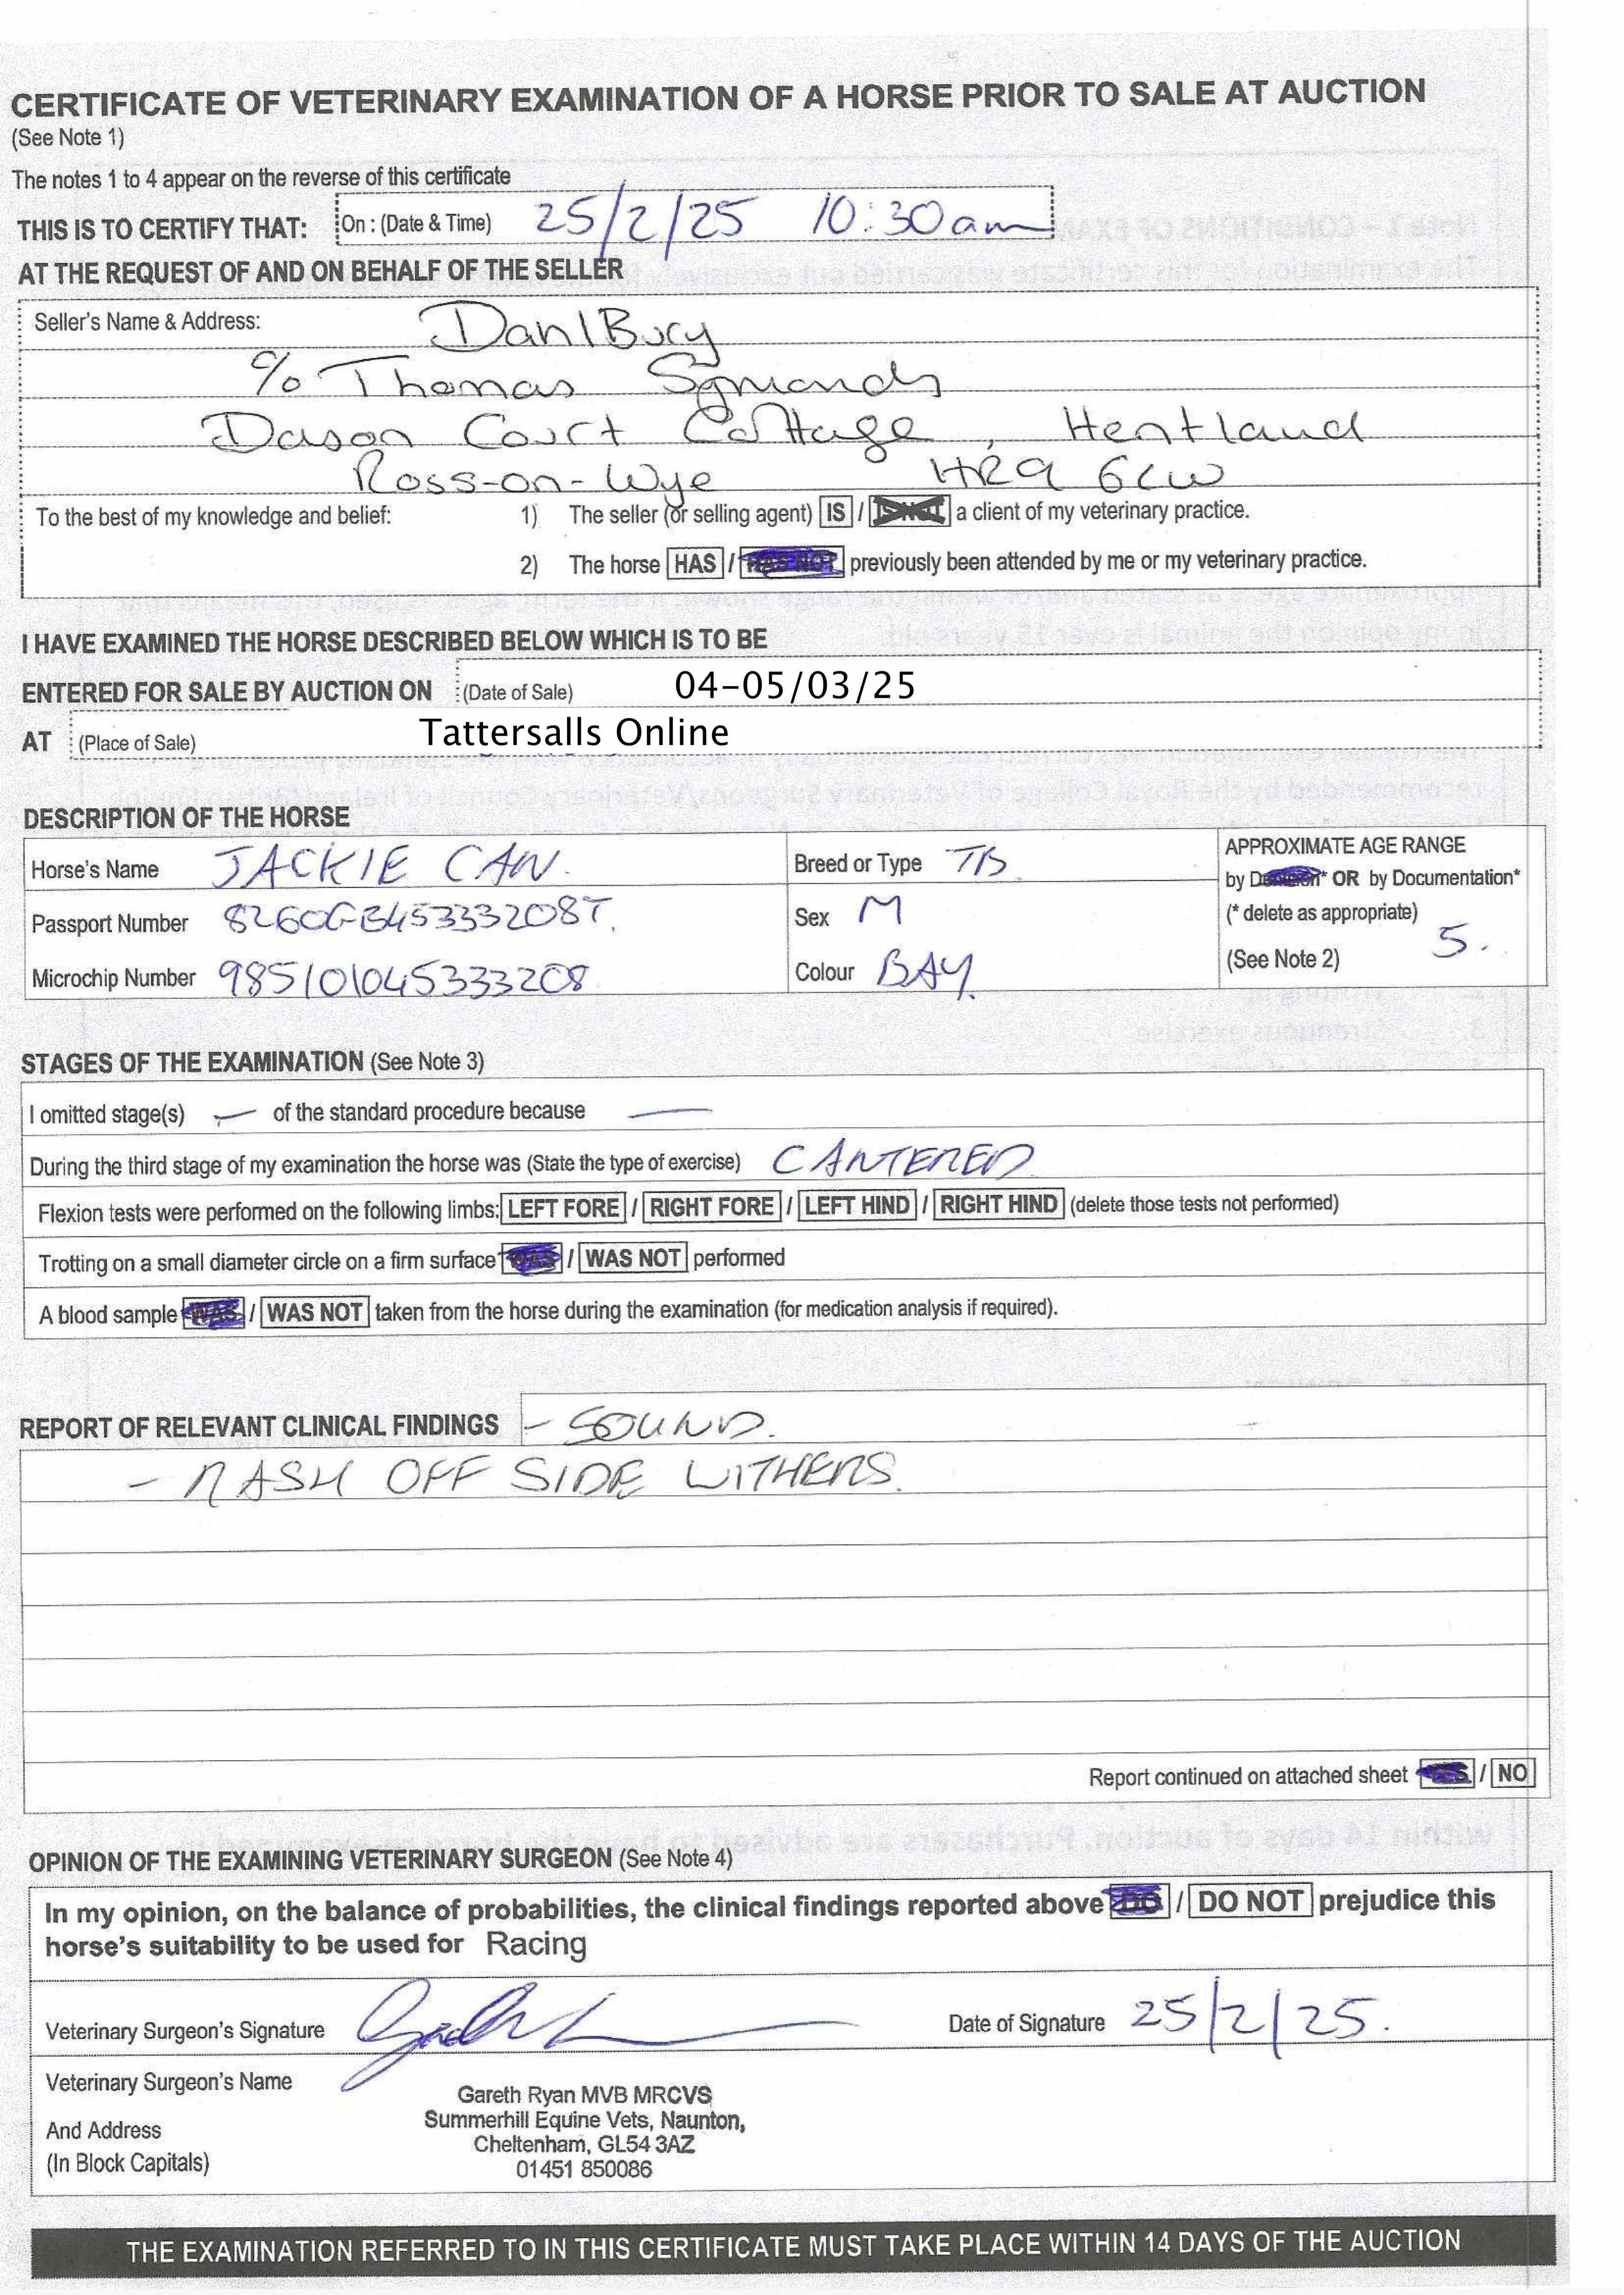 CERTIFICATE OF VETERINARY EXAMINATION OF A HORSE PRIOR TO SALE AT AUCTION
(See Note 1)
The notes 1 to 4 appear on the reverse of this certificate
THIS IS TO CERTIFY THAT: On : (Date & Time) 25/2/25 10:30am
AT THE REQUEST OF AND ON BEHALF OF THE SELLER
Seller's Name & Address: Danl Bury
c/o Thomas Symonds
Dason Court Cottage, Hentland
Ross-on-Wye HR9 6LW
To the best of my knowledge and belief: 1) The seller (or selling agent) IS / IS NOT a client of my veterinary practice.
2) The horse HAS / HAS NOT previously been attended by me or my veterinary practice.
I HAVE EXAMINED THE HORSE DESCRIBED BELOW WHICH IS TO BE
ENTERED FOR SALE BY AUCTION ON (Date of Sale) 04-05/03/25
AT (Place of Sale) Tattersalls Online
DESCRIPTION OF THE HORSE
Horse's Name JACKIE CAN. Breed or Type TB
APPROXIMATE AGE RANGE
by Dentition* OR by Documentation*
Passport Number 8260GB45333208T. Sex M (* delete as appropriate)
5.
Microchip Number 985101045333208 Colour BAY. (See Note 2)
STAGES OF THE EXAMINATION (See Note 3)
I omitted stage(s) — of the standard procedure because —
During the third stage of my examination the horse was (State the type of exercise) CANTERED
Flexion tests were performed on the following limbs: LEFT FORE / RIGHT FORE / LEFT HIND / RIGHT HIND (delete those tests not performed)
Trotting on a small diameter circle on a firm surface WAS / WAS NOT performed
A blood sample WAS / WAS NOT taken from the horse during the examination (for medication analysis if required).
REPORT OF RELEVANT CLINICAL FINDINGS - SOUND.
- RASH OFF SIDE WITHERS.
Report continued on attached sheet YES / NO
OPINION OF THE EXAMINING VETERINARY SURGEON (See Note 4)
In my opinion, on the balance of probabilities, the clinical findings reported above DO / DO NOT prejudice this
horse's suitability to be used for Racing
Veterinary Surgeon's Signature Date of Signature 25/2/25.
Veterinary Surgeon's Name
And Address
(In Block Capitals)
Gareth Ryan MVB MRCVS
Summerhill Equine Vets, Naunton,
Cheltenham, GL54 3AZ
01451 850086
THE EXAMINATION REFERRED TO IN THIS CERTIFICATE MUST TAKE PLACE WITHIN 14 DAYS OF THE AUCTION